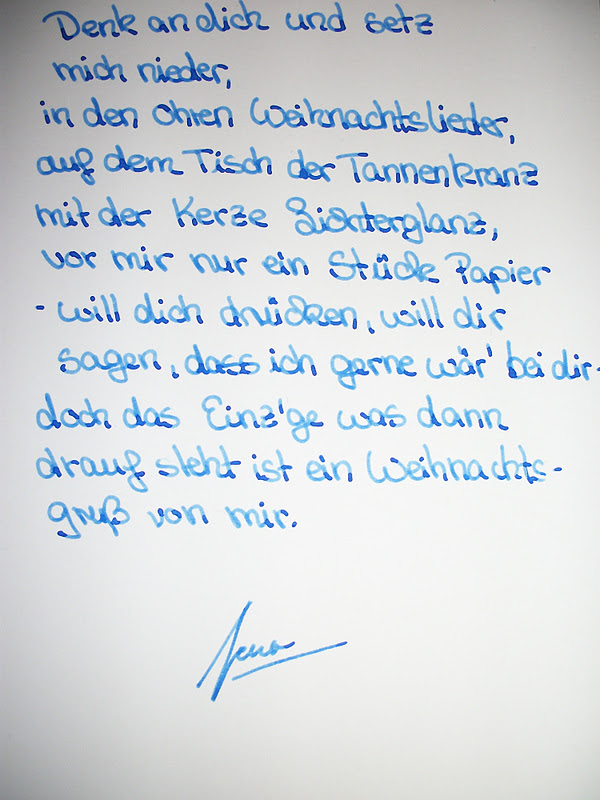 Denk an dich und setz
mich nieder,
in den Ohren Weihnachtslieder,
auf dem Tisch der Tannenkranz
mit der Kerze Lichterglanz,
vor mir nur ein Stück Papier
- will dich drücken, will dir
sagen, dass ich gerne wär' bei dir -
doch das Einz'ge was dann
drauf steht ist ein Weihnachts-
gruß von mir.